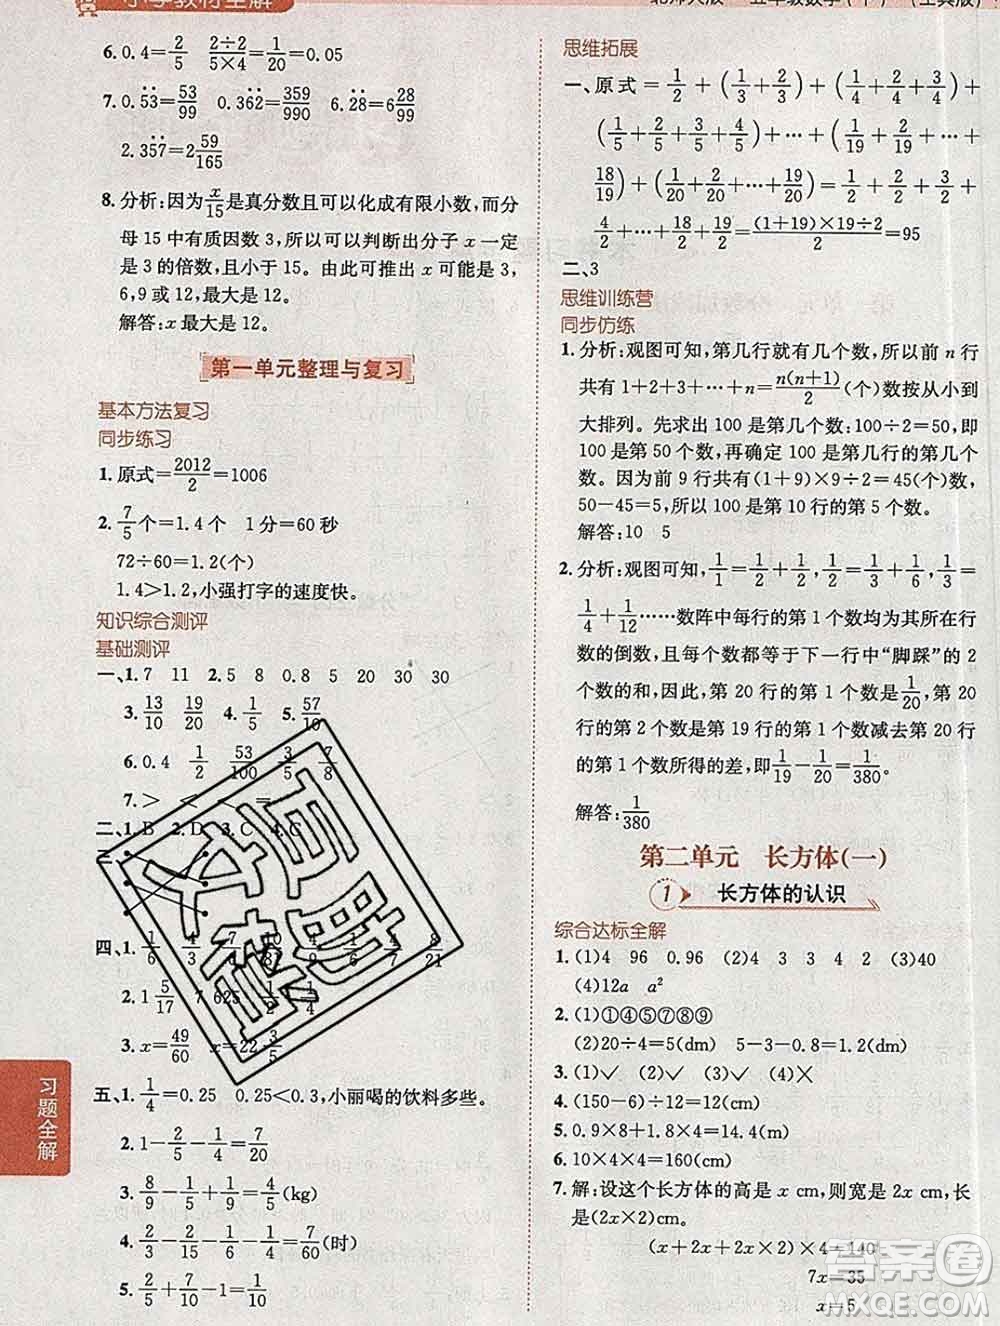 小学教材全解
北师大版 五年级数学(下) (工具版)
6. 0.4=2/5 (2÷2)/(5×4)=1/20=0.05
7. 0.5̇3̇=53/99 0.36̇2̇=359/990 6.2̇8̇=6 28/99
2.35̇7̇=2 59/165
8. 分析:因为x/15是真分数且可以化成有限小数,而分
母 15 中有质因数 3,所以可以判断出分子 x 一定
是 3 的倍数,且小于 15。由此可推出 x 可能是 3,
6,9 或 12,最大是 12。
解答:x 最大是 12。
第一单元整理与复习
基本方法复习
同步练习
1. 原式=2012/2=1006
2. 7/5个=1.4 个 1 分=60 秒
72÷60=1.2(个)
1.4>1.2,小强打字的速度快。
知识综合测评
基础测评
一、1. 7 11 2. 5 8 0.8 5 20 30 30
3. 13/10 19/20 4. 1/5 5. 57/10
6. 0.4 1/2 53/100 3/5 7/8
7. > < =
二、1. B 2. D 3. C 4. C
四、1. 1/6 4/3 8/21
2. 1 5/17 7 625 1/2 1/4
3. x=49/60 x=22 3/5
五、1. 1/4=0.25 0.25<0.3,小丽喝的饮料多些。
2. 1-2/5-1/4=7/20
3. 8/9-1/5+1/9=4/5(kg)
4. 4/5-1/3-1/4-1/10=7/60(时)
5. 1/2+2/5-4/5=1/10
习题全解
思维拓展
一、原式=1/2+(1/3+2/3)+(1/4+2/4+3/4)+
(1/5+2/5+3/5+4/5)+…+(1/19+2/19+…+
18/19)+(1/20+2/20+…+19/20)=1/2+2/2+3/2+
4/2+…+18/2+19/2=((1+19)×19÷2)/2=95
二、3
思维训练营
同步仿练
1. 分析:观图可知,第几行就有几个数,所以前 n 行
共有 1+2+3+…+n=n(n+1)/2个数按从小到
大排列。先求出 100 是第几个数:100÷2=50,即
100 是第 50 个数,再确定 100 是第几行的第几个
数。因为前 9 行共有(1+9)×9÷2=45(个)数,
50-45=5,所以 100 是第 10 行的第 5 个数。
解答:10 5
2. 分析:观图可知,1/1=1/2+1/2,1/2=1/3+1/6,1/3=
1/4+1/12……数阵中每行的第 1 个数均为其所在行
数的倒数,且每个数都等于下一行中“脚踩”的 2
个数的和,因此,第 20 行的第 1 个数是1/20,第 20
行的第 2 个数是第 19 行的第 1 个数减去第 20 行
的第 1 个数所得的差,即1/19-1/20=1/380。
解答:1/380
第二单元 长方体(一)
1 长方体的认识
综合达标全解
1. (1)4 96 0.96 (2)3 3 4 2 (3)40
(4)12a a²
2. (1)①④⑤⑦⑧⑨
(2)20÷4=5(dm) 5×2=10(dm)
3. (1)× (2)× (3)√ (4)√
4. (150-6)÷12=12(cm)
5. 0.9×8+1.8×4=14.4(m)
6. 10×4×4=160(cm)
7. 解:设这个长方体的高是 x cm,则宽是 2x cm,长
是(2x×2)cm。
(x+2x+2x×2)×4=140
7x=35
x=5
答案圈
MXQE.COM